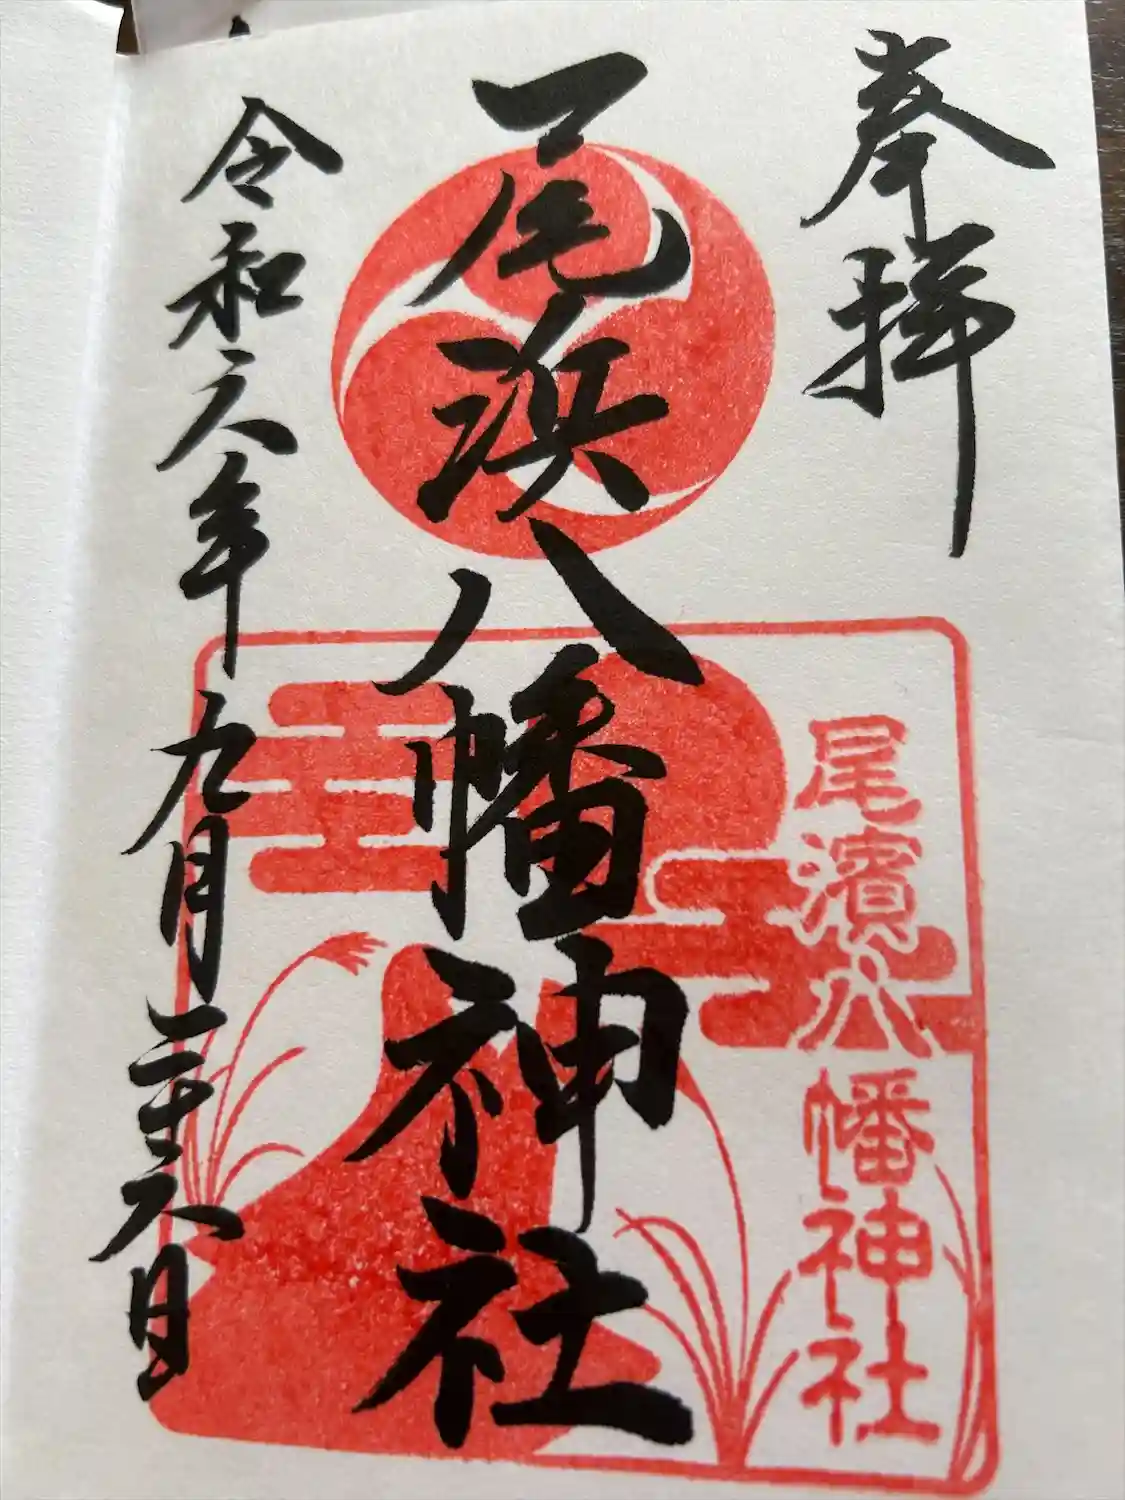 奉拝
尾浜八幡神社
尾濱八幡神社
令和六年九月二十六日